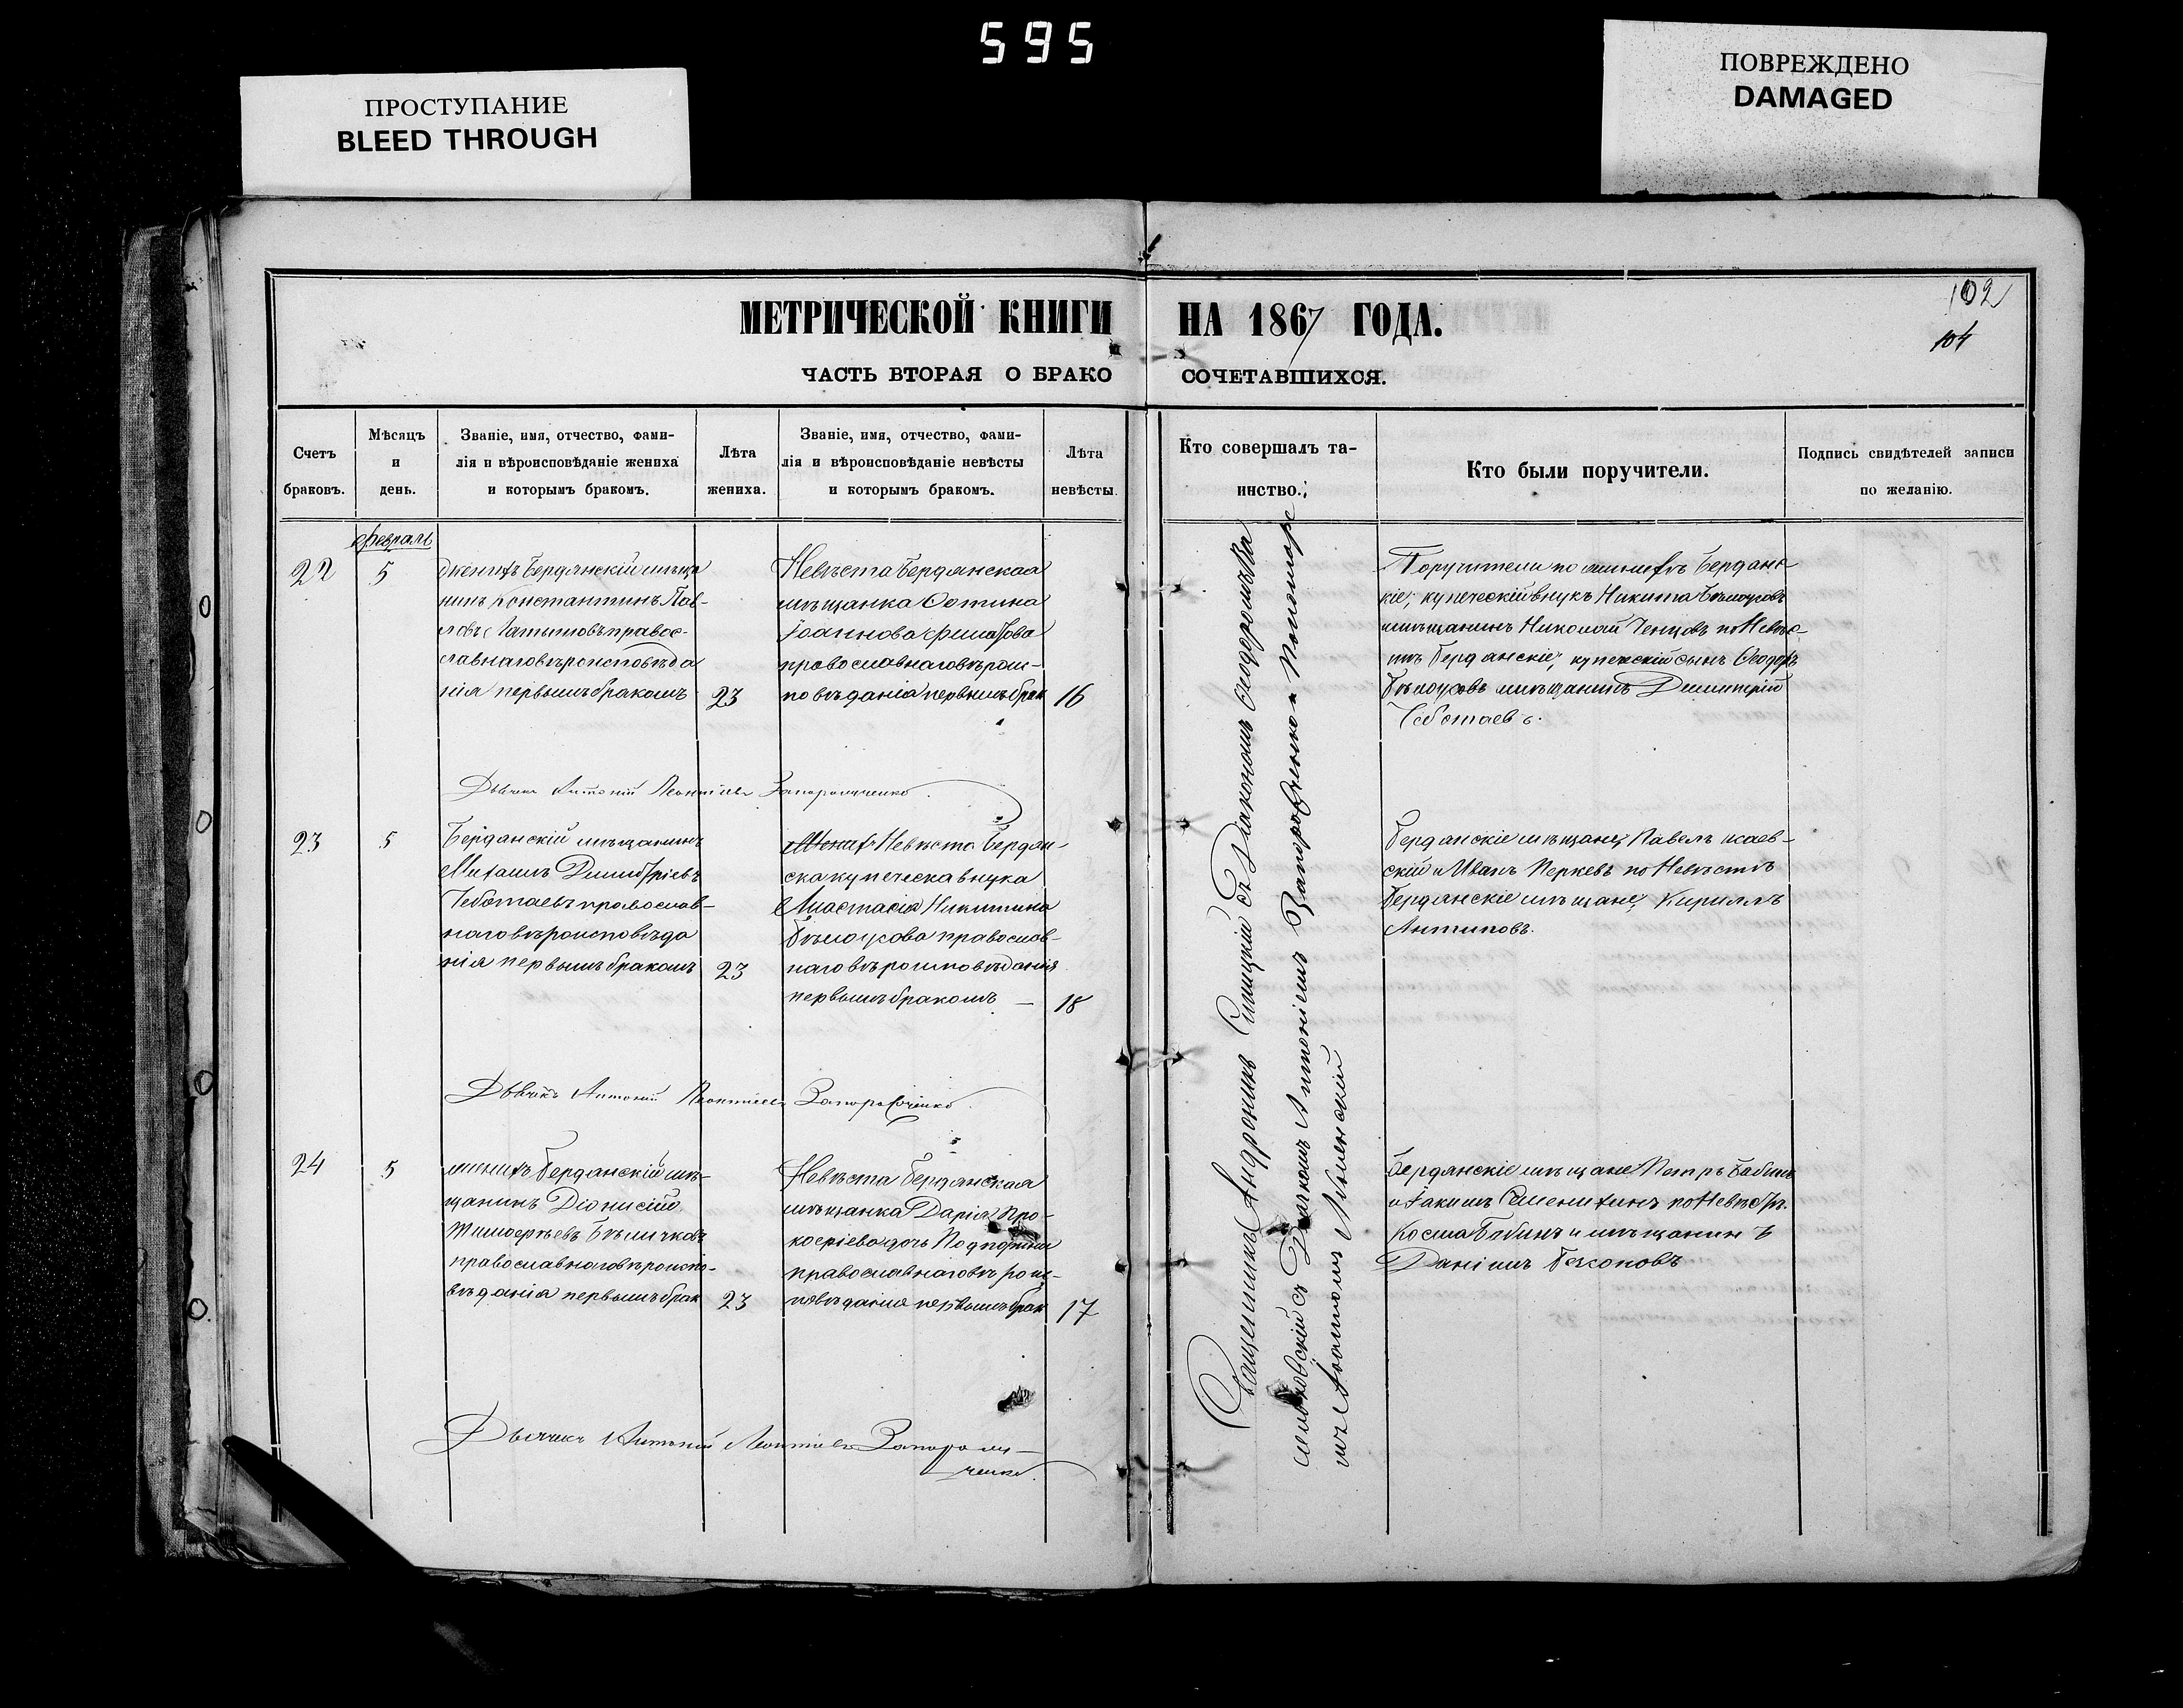 595
ПРОСТУПАНИЕ
BLEED THROUGH
ПОВРЕЖДЕНО
DAMAGED
102
104
МЕТРИЧЕСКОЙ КНИГИ НА 1867 ГОДА.
ЧАСТЬ ВТОРАЯ О БРАКО СОЧЕТАВШИХСЯ.
Счетъ
браковъ.
Мѣсяцъ
и
день.
Званіе, имя, отчество, фами-
лія и вѣроисповѣданіе жениха
и которымъ бракомъ.
Лѣта
жениха.
Званіе, имя, отчество, фами-
лія и вѣроисповѣданіе невѣсты
и которымъ бракомъ.
Лѣта
невѣсты.
Кто совершалъ та-
инство.
Кто были поручители.
Подпись свидѣтелей записи
по желанію.
февраль
22
5
женихъ Бердянскій мѣща
нинъ Константинъ Пав-
ловъ правос-
лавнаго вѣроисповѣда
нія первымъ бракомъ
23
Невѣста Бердянская
мѣщанка Фотина
Іоаннова
православнаго вѣроис-
повѣданія первымъ брак
16
Поручители по женихѣ Бердянс-
кіе, купеческій внукъ Никита Бѣлоусовъ
мѣщанинъ Николай Ченцовъ по Невѣс-
тѣ Бердянскіе, купеческій сынъ Ѳеодоръ
Бѣлоусовъ мѣщанинъ Димитрій
Чеботаевъ.
Дьячекъ Антоній Леонтіевъ Запорожченко
23
5
Бердянскій мѣщанинъ
Михаилъ Димитріевъ
Чеботаевъ православ-
наго вѣроисповѣда
нія первымъ бракомъ
23
Невѣста Бердян-
ска купеческа внука
Анастасія Никитина
Бѣлоусова православ-
наго вѣроисповѣданія
первымъ бракомъ —
18
Бердянскіе мѣщане, Павелъ
и Иванъ Перкевъ по Невѣстѣ
Бердянскіе мѣщане, Кириллъ
Антиповъ.
Дьячекъ Антоній Леонтіевъ Запорожченко
24
5
женихъ Бердянскій мѣ-
щанинъ Діонисій
Тимофѣевъ Бѣличковъ
православнаго вѣроиспо-
вѣданія первымъ брак
23
Невѣста Бердянская
мѣщанка Дарія Про-
кофіева дочь
православнаго вѣроис-
повѣданія первымъ брак
17
Бердянскіе мѣщане Петръ Бабинъ
и Іакимъ по Невѣстѣ.
Косма Бабинъ и мѣщанинъ
Даніилъ
Дьячекъ Антоній Леонтіевъ Запорож-
ченко.
Священникъ Андроникъ съ Діакономъ Ѳеодоромъ
съ Дьячкомъ Антоніемъ Запорожченко и Пономаре
мъ